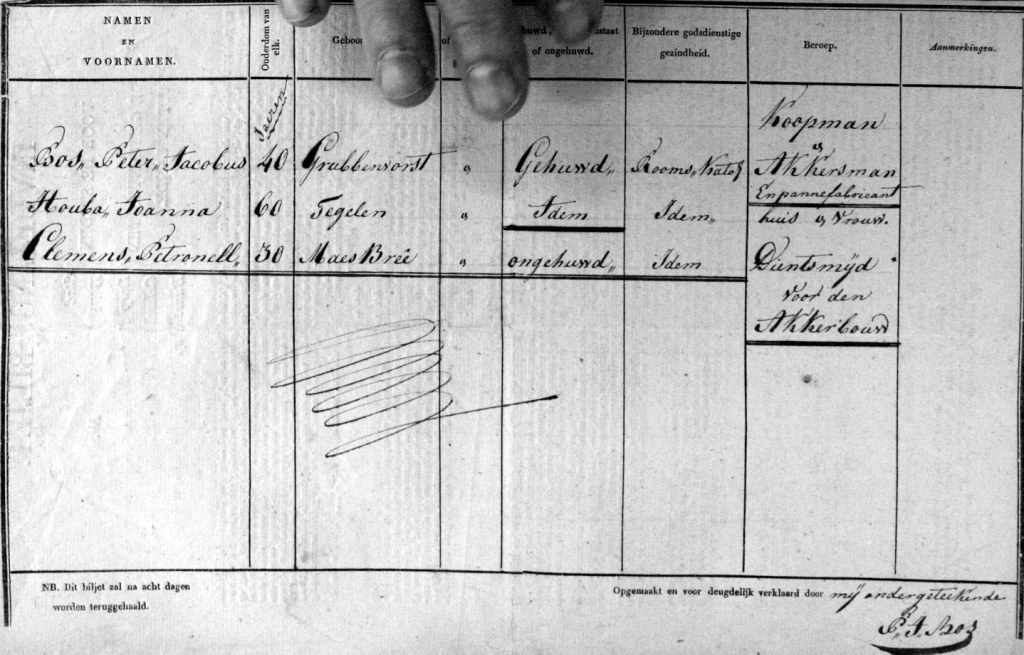 NAMEN
EN
VOORNAMEN.
Ouderdom van elk.
of ongehuwd.
Bijzondere godsdienstige
gezindheid.
Beroep.
Aanmerkingen.
Jaeren
Koopman
&
Bos,, Peter,, Jacobus 40 Grubbenvorst " Gehuwd,, Rooms,, Katol Akkersman
En pannefabricant
Houba,, Joanna 60 Tegelen " Idem Idem,, huis & Vrouw.
Clemens,, Petronell,, 30 Maes Breé " ongehuwd,, Idem Dientsmijd
voor den
Akkerbouw
NB. Dit biljet zal na acht dagen
worden teruggehaald.
Opgemaakt en voor deugdelijk verklaard door mij ondergeteekende
P. J. Bos